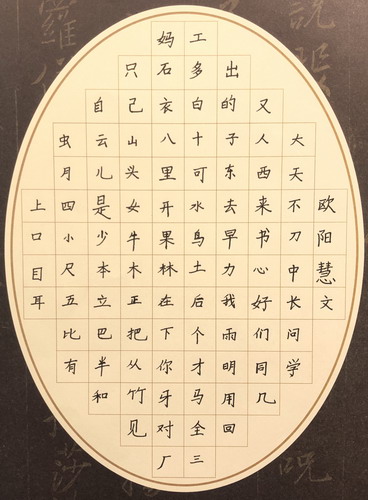 妈工
只石多出
自己衣白的又
虫云山八十子人大
月儿头里可东西天
上四是女开水去来不
口小少牛果鸟早书刀
目尺本木林土力心中
耳五立正在后我好长
比巴把下个雨们问
有半从你才明同学
和竹牙马用几
见对全回
厂三
欧阳慧文